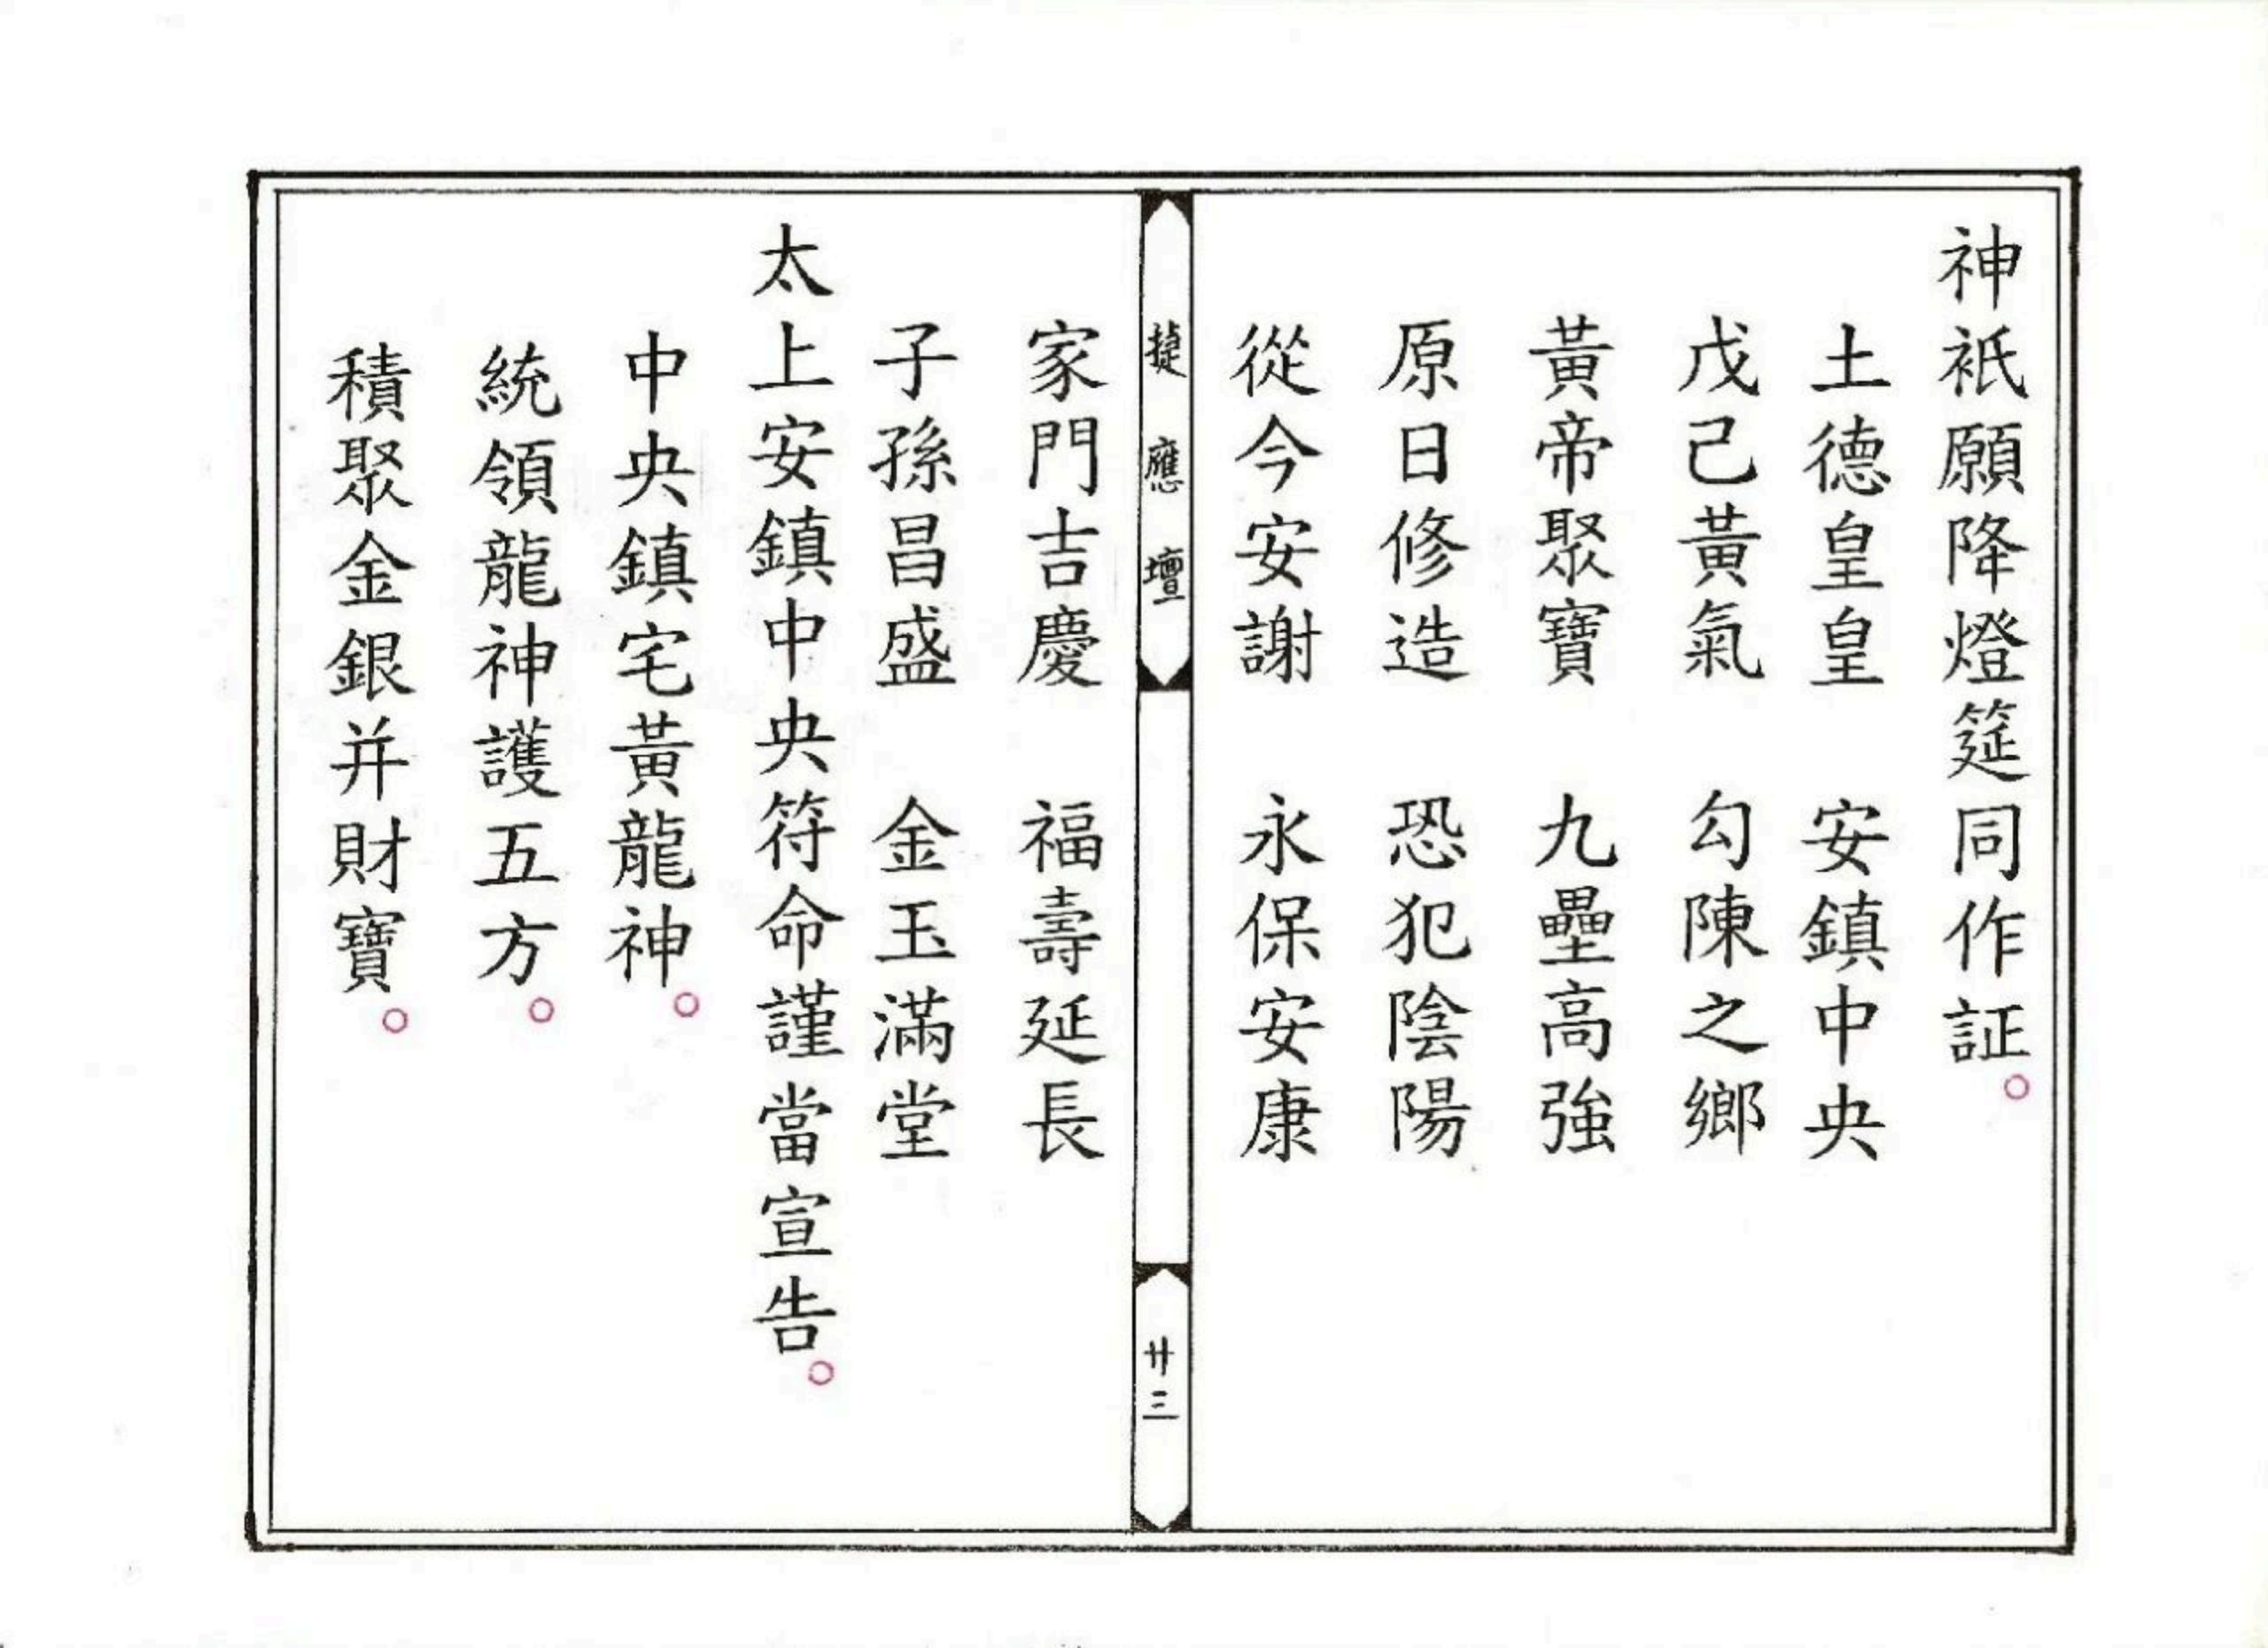 神祇願降燈筵同作証。
土德皇皇　安鎮中央
戊己黃氣　勾陳之鄉
黃帝聚寶　九壘高強
原日修造　恐犯陰陽
從今安謝　永保安康
捷應壇
廿三
家門吉慶　福壽延長
子孫昌盛　金玉滿堂
太上安鎮中央符命謹當宣告。
中央鎮宅黃龍神。
統領龍神護五方。
積聚金銀并財寶。